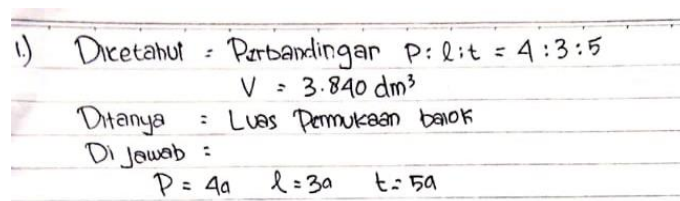 1.) Dicetahui : Perbandingan P : l : t = 4 : 3 : 5
V = 3.840 dm³
Ditanya : Luas Permukaan balok
Di Jawab :
P = 4a l = 3a t = 5a